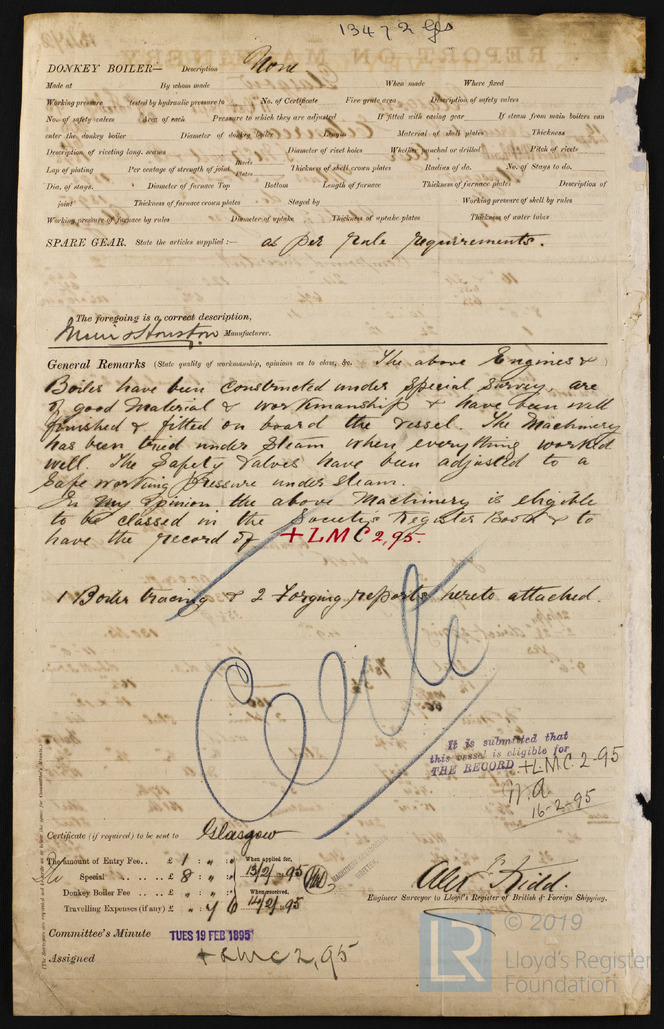 13472 Gls
DONKEY BOILER— Description None
Made at By whom made When made Where fixed
Working pressure tested by hydraulic pressure to No. of Certificate Fire grate area Description of safety valves
No. of safety valves Area of each Pressure to which they are adjusted If fitted with easing gear If steam from main boilers can
enter the donkey boiler Diameter of donkey boiler Length Material of shell plates Thickness
Description of riveting long. seams Diameter of rivet holes Whether punched or drilled Pitch of rivets
Lap of plating Per centage of strength of joint Rivets Plates Thickness of shell crown plates Radius of do. No. of Stays to do.
Dia. of stays. Diameter of furnace Top Bottom Length of furnace Thickness of furnace plates Description of
joint Thickness of furnace crown plates Stayed by Working pressure of shell by rules
Working pressure of furnace by rules Diameter of uptake Thickness of uptake plates Thickness of water tubes
SPARE GEAR. State the articles supplied:— as per rule requirements.
The foregoing is a correct description,
Muir & Houston Manufacturer.
General Remarks (State quality of workmanship, opinions as to class, &c. The above Engines &
Boiler have been constructed under Special Survey, are
of good Material & workmanship & have been well
finished & fitted on board the vessel. The Machinery
has been tried under Steam when everything worked
well. The Safety Valves have been adjusted to a
Safe working pressure under steam.
In my opinion the above Machinery is eligible
to be classed in the Society's Register Book & to
have the record of +LMC 2,95.
1 Boiler tracing & 2 Forging reports hereto attached.
It is submitted that
this vessel is eligible for
THE RECORD +LMC 2-95
16-2-95
Certificate (if required) to be sent to Glasgow
The amount of Entry Fee.. £ 1 : " : " When applied for,
Special £ 8 : " : " 13/2/95
Donkey Boiler Fee £ " : " : " When received,
Travelling Expenses (if any) £ " : 4 6 14/2/95
Alex. Kidd.
Engineer Surveyor to Lloyd's Register of British & Foreign Shipping.
Committee's Minute TUES 19 FEB 1895
Assigned +LMC 2,95
© 2019
LR
Lloyd's Register
Foundation